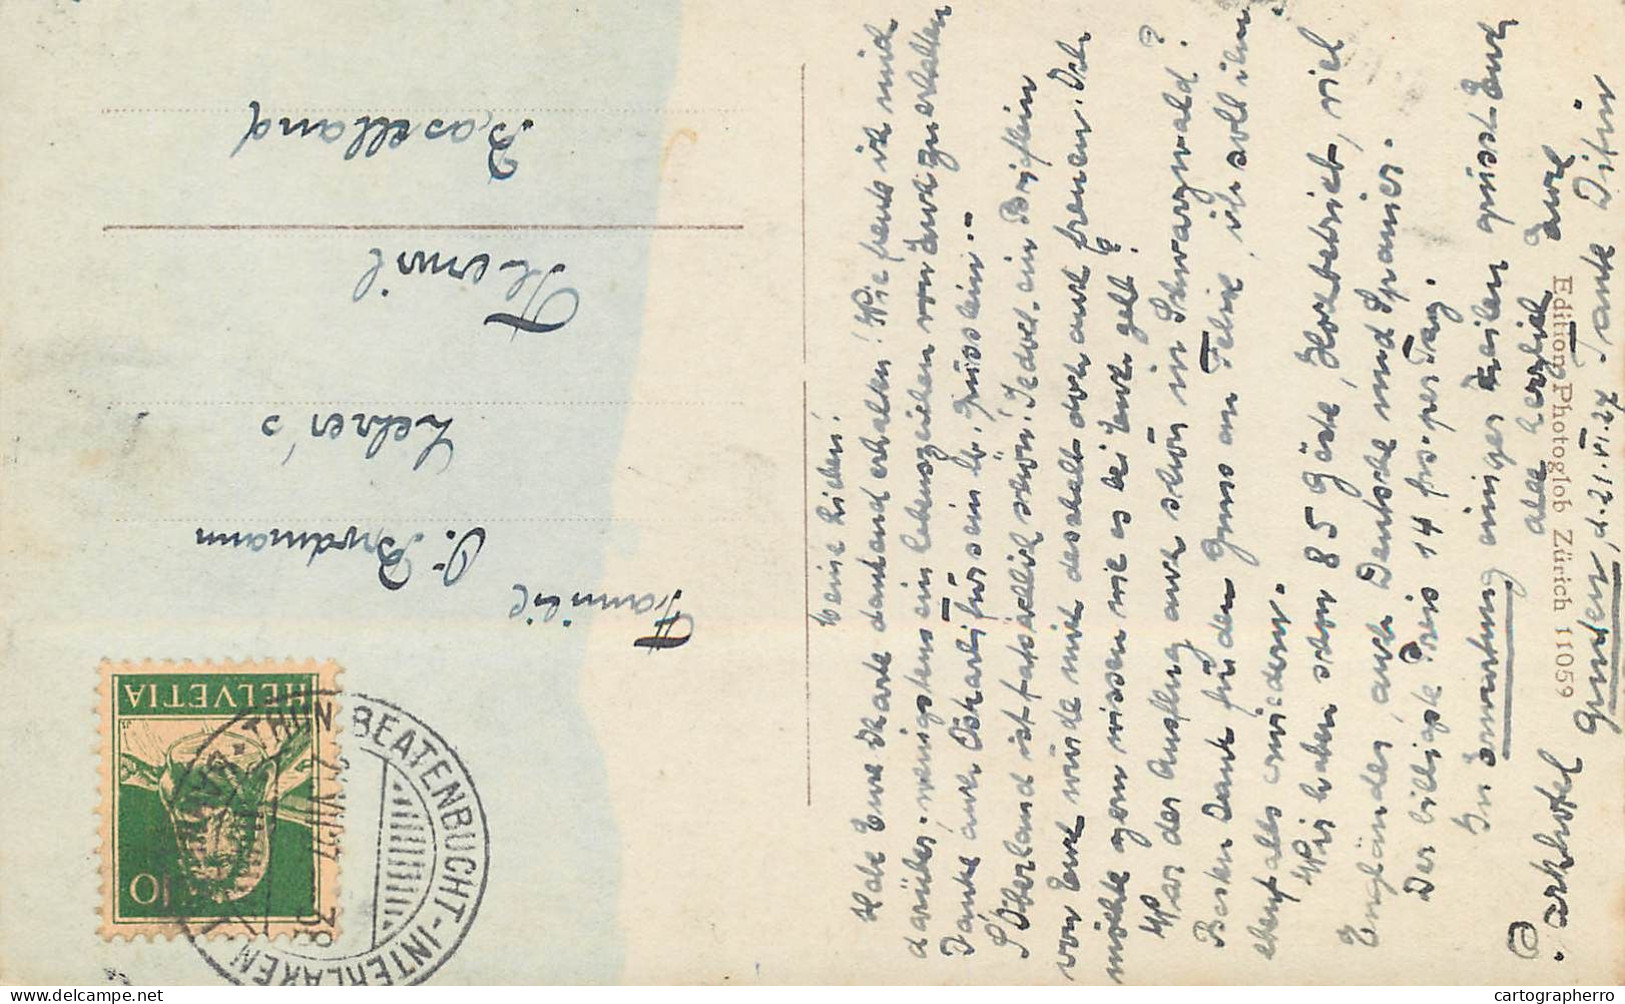 Meine Lieben!
Habe Eure Karte dankend erhalten! Wie freute ich mich
darüber, wenigstens ein Lebenszeichen von Euch zu erhalten
Danke auch Oskarli für sein lb. Grüsslein.-
's Oberland ist fabelhaft schön! Jedoch ein Brieflein
von Euch würde mich deshalb doch auch freuen. Ich
möchte gern wissen wie es bei Euch geht?
War der Ausflug auch schön in Schwarzwald?
Besten Dank für den Gruss an Felix, ich soll ihn
ebenfalls erwiedern.
Wir haben schon 85 Gäste, Hochbetrieb, viel
Engländer, auch Deutsche und Spanier.
Der billigste Preis 14 frs. per Tag.
In Erwartung einiger Zeilen grüsst Euch
alle herzlich Eure
Tante
Parkhotel
Gunten, d. 21. VI. 27.
Edition Photoglob Zürich 11059
Familie
O. Brodmann
Lehrer's
Therwil
Baselland
HELVETIA
10
THUN-BEATENBUCHT-INTERLAKEN
cartographerro